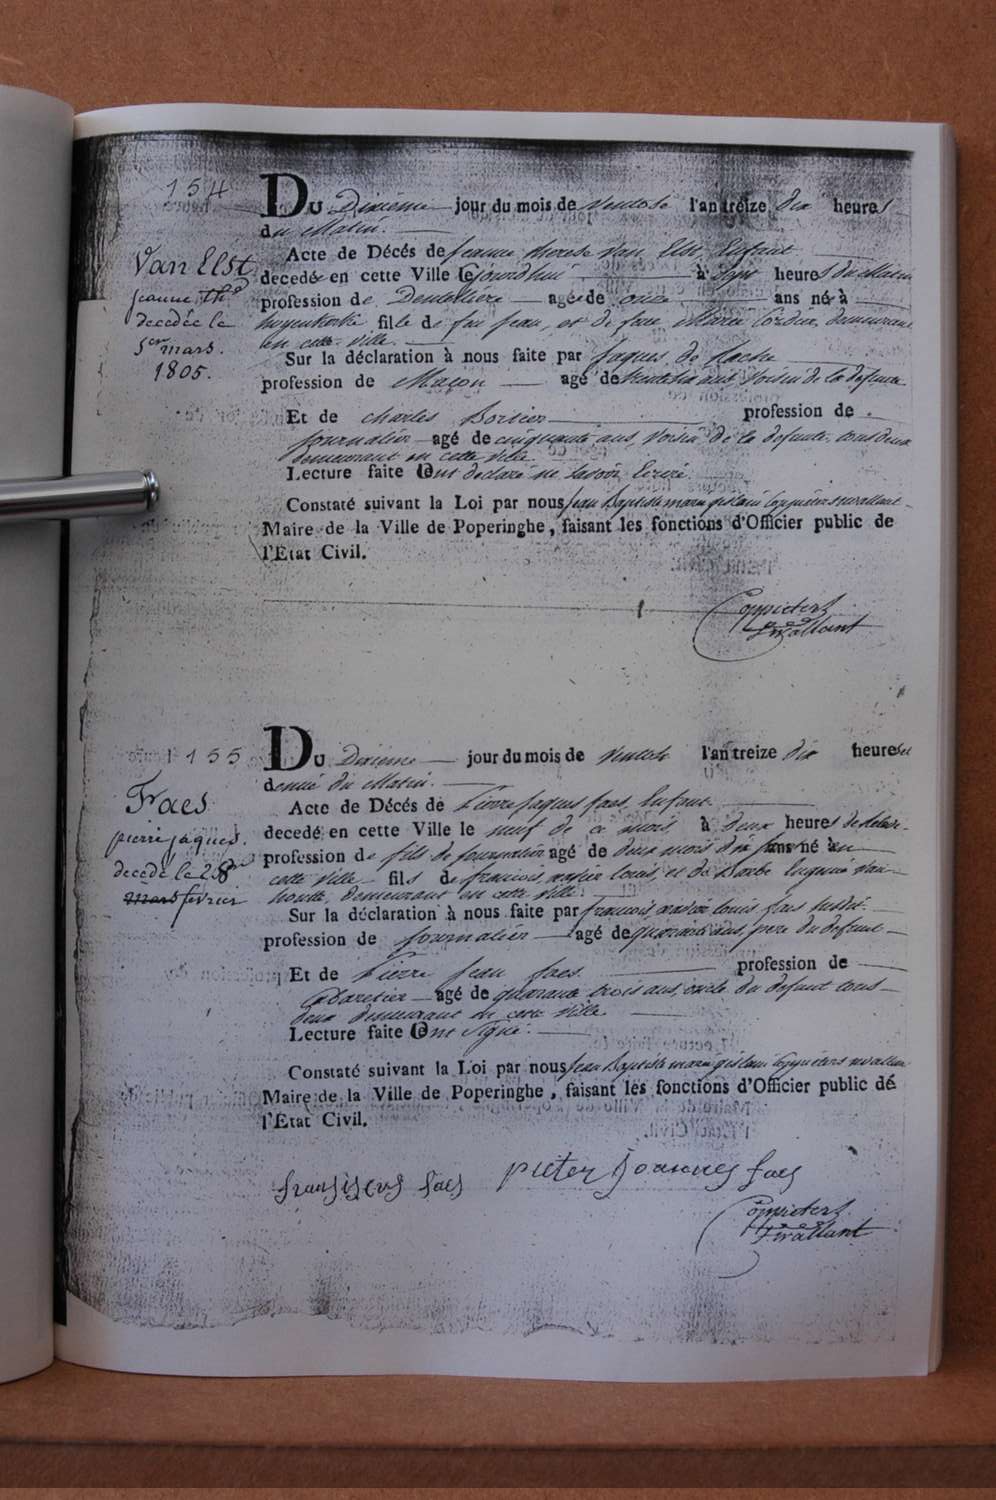 154
Du Dixieme jour du mois de Ventose l'an treize dix heures
du Matin.
Van Elst
jeanne thse
decedée le
1er mars.
1805.
Acte de Décés de Jeanne therese Van Elst, Enfant
decedée en cette Ville le jourdhui à sept heures du Matin
profession de Dentelliere agée de onze ans né à
fille de feu Jean, et de feue Marie Cordier, demeurant
en cette ville.
Sur la déclaration à nous faite par Jaques de
profession de Maçon agé de ans Voisin de la defunte
Et de Charles profession de
Journalier agé de cinquante ans, Voisin de la defunte, tous deux
demeurant en cette ville
Lecture faite ont declaré ne savoir Ecrire.
Constaté suivant la Loi par nous Jean Baptiste marie gislain Coppieters
Maire de la Ville de Poperinghe, faisant les fonctions d'Officier public de
l'Etat Civil.
Coppieters
155
Du Dixieme jour du mois de Ventose l'an treize dix heures et
demie du Matin.
Faes
pierre jaques.
decede le 28
mars fevrier
Acte de Décés de Pierre Jaques faes, Enfant
decedé en cette Ville le neuf de ce mois, à deux heures de
profession de fils de Journalier agé de deux mois ans né à en
cette Ville fils de francois, xavier Louis, et de Barbe Eugenie Van
houtte, demeurant en cette ville.
Sur la déclaration à nous faite par francois xavier louis faes
profession de Journalier agé de quarante ans, pere du defunt
Et de Pierre Jean faes. profession de
Cabaretier agé de quarante trois ans, oncle du defunt tous
deux demeurant en cette Ville
Lecture faite ont Signé.
Constaté suivant la Loi par nous Jean Baptiste marie gislain Coppieters
Maire de la Ville de Poperinghe, faisant les fonctions d'Officier public de
l'Etat Civil.
fransiscus faes pieter Joannes faes
Coppieters